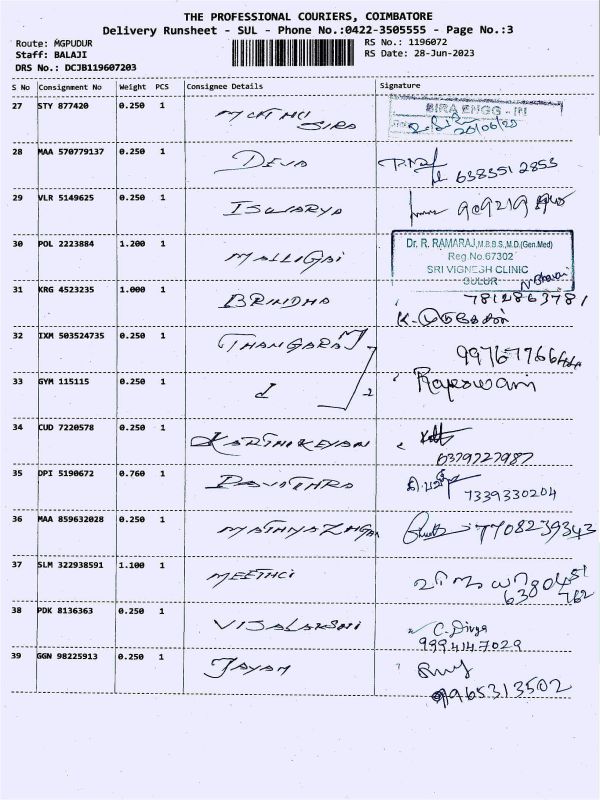 THE PROFESSIONAL COURIERS, COIMBATORE
Delivery Runsheet - SUL - Phone No.:0422-3505555 - Page No.:3
Route: MGPUDUR
RS No.: 1196072
Staff: BALAJI
RS Date: 28-Jun-2023
DRS No.: DCJB119607203
S No Consignment No Weight PCS Consignee Details Signature
27 STY 877420 0.250 1
SIRA ENGG
28 MAA 570779137 0.250 1 DEVA
6383512853
29 VLR 5149625 0.250 1 ISWARYA
30 POL 2223884 1.200 1 MALLIGAI
Dr. R. RAMARAJ,M.B.B.S.,M.D.(Gen.Med)
Reg.No.67302
SRI VIGNESH CLINIC
SULUR
31 KRG 4523235 1.000 1 BRINDHA
7812863781
32 IXM 503524735 0.250 1 THANGARAJ
33 GYM 115115 0.250 1
Rajeswari
34 CUD 7220578 0.250 1 KARTHIKEYAN
6379727987
35 DPI 5190672 0.760 1 PAVITHRA
7339330204
36 MAA 859632028 0.250 1
7708239343
37 SLM 322938591 1.100 1
38 PDK 8136363 0.250 1
C. Divya
9994147029
39 GGN 98225913 0.250 1 JAYAM
9965313502